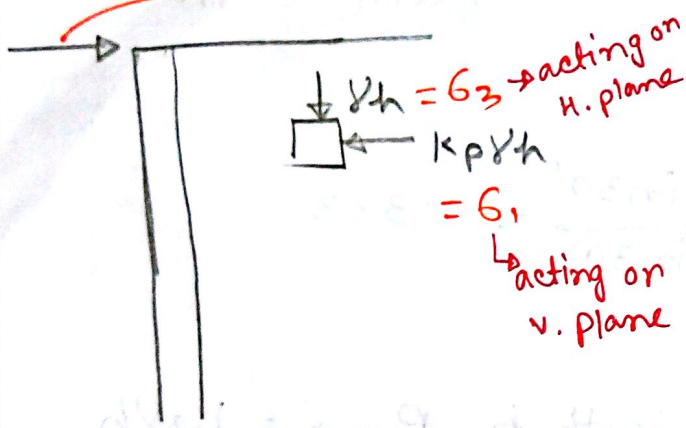 γh = σ3 → acting on
H. plane
Kpγh
= σ1
↳ acting on
v. plane